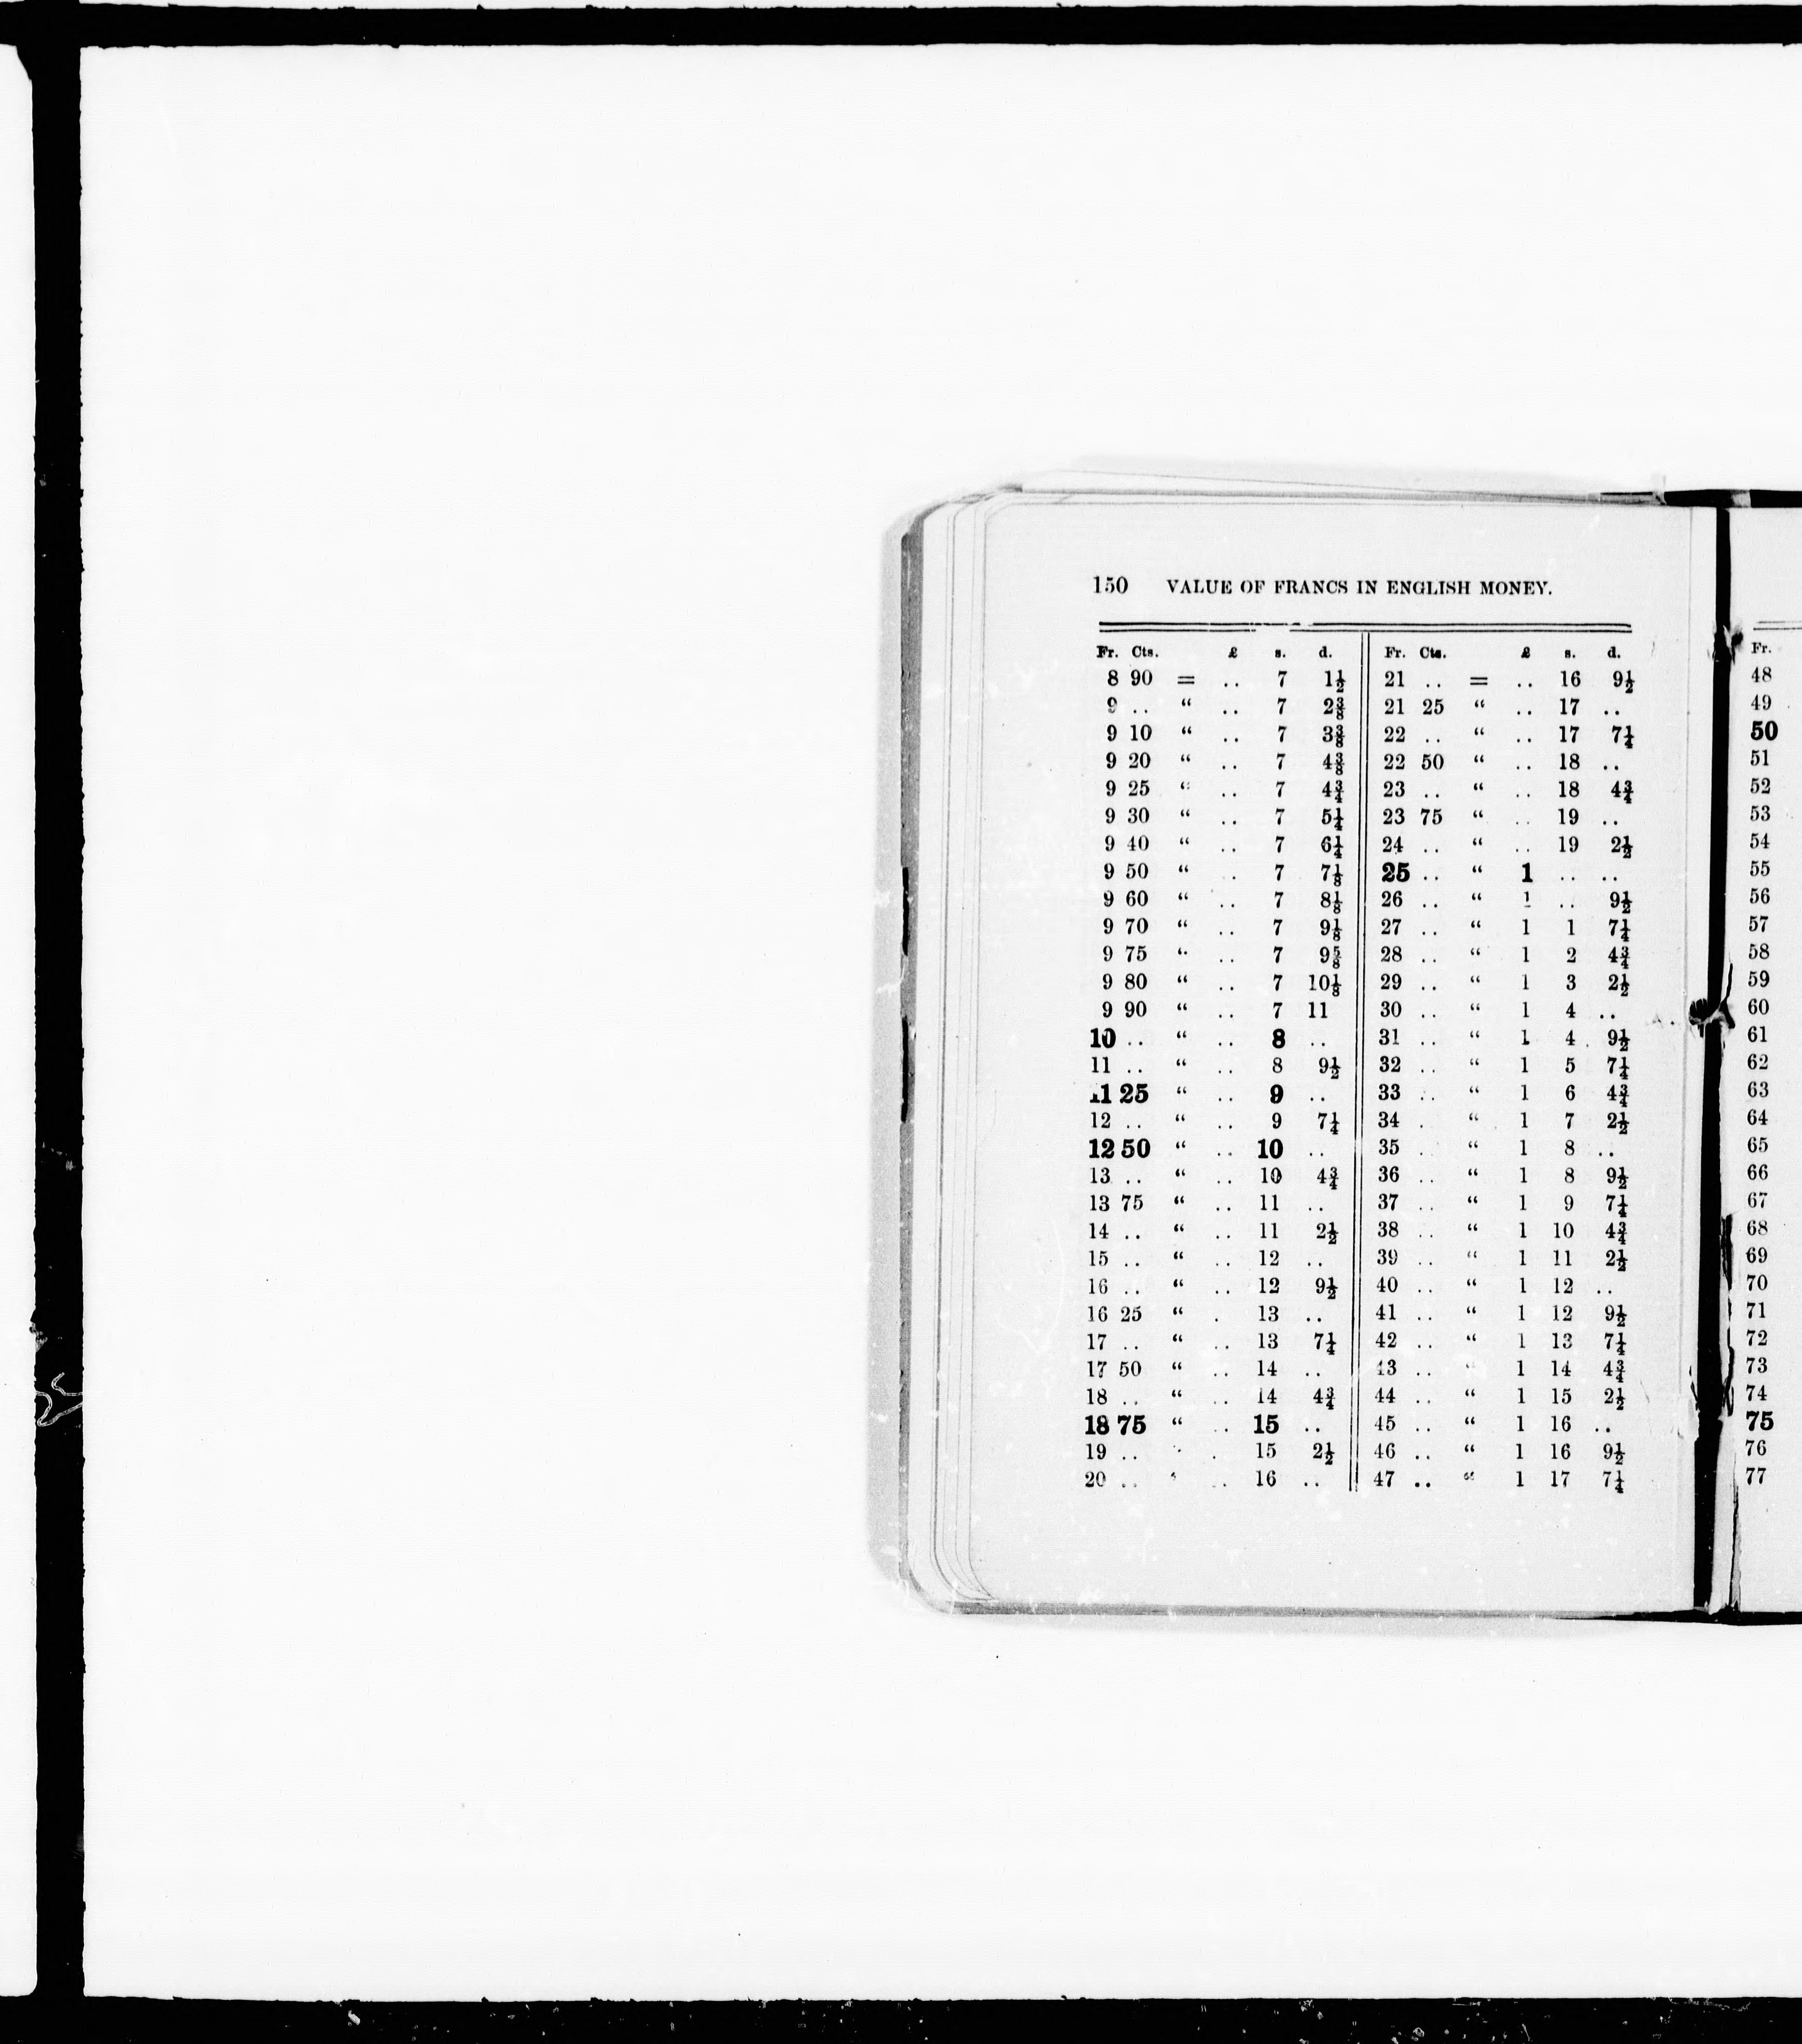 150 VALUE OF FRANCS IN ENGLISH MONEY.
Fr. Cts. £ s. d.
8 90 = .. 7 1½
9 .. “ .. 7 2⅜
9 10 “ .. 7 3⅜
9 20 “ .. 7 4⅜
9 25 “ .. 7 4¾
9 30 “ .. 7 5¼
9 40 “ .. 7 6¼
9 50 “ .. 7 7⅛
9 60 “ .. 7 8⅛
9 70 “ .. 7 9⅛
9 75 “ .. 7 9⅝
9 80 “ .. 7 10⅛
9 90 “ .. 7 11
10 .. “ .. 8 ..
11 .. “ .. 8 9½
11 25 “ .. 9 ..
12 .. “ .. 9 7¼
12 50 “ .. 10 ..
13 .. “ .. 10 4¾
13 75 “ .. 11 ..
14 .. “ .. 11 2½
15 .. “ .. 12 ..
16 .. “ .. 12 9½
16 25 “ . 13 ..
17 .. “ .. 13 7¼
17 50 “ .. 14 ..
18 .. “ .. 14 4¾
18 75 “ .. 15 ..
19 .. “ . 15 2½
20 .. “ .. 16 ..
Fr. Cts. £ s. d.
21 .. = .. 16 9½
21 25 “ .. 17 ..
22 .. “ .. 17 7¼
22 50 “ .. 18 ..
23 .. “ .. 18 4¾
23 75 “ .. 19 ..
24 .. “ .. 19 2½
25 .. “ 1 .. ..
26 .. “ 1 .. 9½
27 .. “ 1 1 7¼
28 .. “ 1 2 4¾
29 .. “ 1 3 2½
30 .. “ 1 4 ..
31 .. “ 1 4 9½
32 .. “ 1 5 7¼
33 .. “ 1 6 4¾
34 . “ 1 7 2½
35 .. “ 1 8 ..
36 .. “ 1 8 9½
37 .. “ 1 9 7¼
38 .. “ 1 10 4¾
39 .. “ 1 11 2½
40 .. “ 1 12 ..
41 .. “ 1 12 9½
42 .. “ 1 13 7¼
43 .. “ 1 14 4¾
44 .. “ 1 15 2½
45 .. “ 1 16 ..
46 .. “ 1 16 9½
47 .. “ 1 17 7¼
Fr.
48
49
50
51
52
53
54
55
56
57
58
59
60
61
62
63
64
65
66
67
68
69
70
71
72
73
74
75
76
77